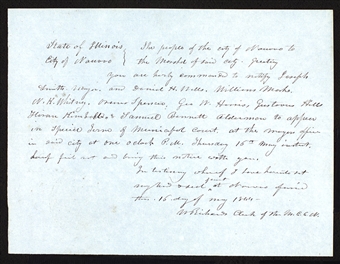 State of Illinois, } The people of the city of Nauvoo to
City of Nauvoo } the Marshal of said city. Greeting
you are hereby commanded to notify Joseph
Smith, Mayor and Daniel H. Wells, William Marks,
N. K. Whitney, Orson Spencer, Geo W. Harris, Gustavus Hills
Hiram Kimball & Samuel Bennett Aldermen to appear
in Special Term of Municipal Court, at the mayor's office
in said city at one o clock P.M. Thursday 16th May instant,
hereof fail not and bring this notice with you.
In testimony whereof I have hereunto set
my hand & seal of court at Nauvoo
this 15 day of may 1844.
W Richards Clerk of the M. C.